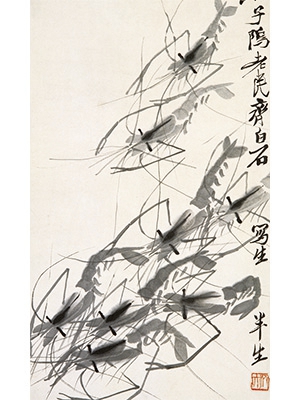 子隖老民齊白石
寫生
半生